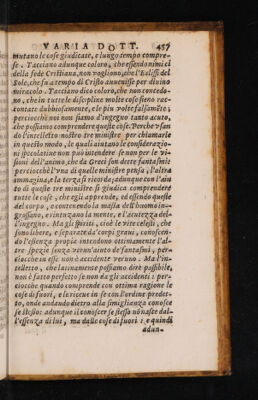 VARIA DOTT. 457
mutano le cose giudicate, e lungo tempo compre-
se. Tacciano adunque coloro, che essendo nimici
della fede Cristiana, non vogliono, che l'Eclissi del
Sole, che fu a tempo di Cristo auuenisse per diuino
miracolo. Tacciano dico coloro, che non conceden-
do, che in tutte le discipline molte cose sieno rac-
contate dubbiosamente, e le piu volte falsamēte;
perciocche noi non siamo d'ingegno tanto acuto,
che possiamo comprendere queste cose. Perche vsan
do l'intelletto nostro tre ministre per chiamarle
in questo modo, le quali aiutano le considerazio-
ni ipocoletine non può intendere se non per le vi-
sioni dell'animo, che da Greci son dette fantasmi
perciocche l'vna di quelle ministre pensa, l'altra
immagina, e la terza si ricorda; adunque con l'aiu
to di queste tre ministre si giudica comprendere
tutte le cose, che egli apprende, ed essendo quelle
del corpo, e contenendo la massa dell'huomo in-
grossano, e rintuzano la mente, e l'acutezza del-
l'ingegno. Ma gli spiriti, cioè le vite celesti, che
sono libere, e separate da' corpi graui, conoscen-
do l'essenza propie intendono ottimamente l'al-
tre spezie senza veruno aiuto de' fantasmi, per-
ciocche in esse non è accidente veruno. Ma l'in-
telletto, che latinamente possiamo dire possibile,
non è fatto perfetto se non da gli accidenti: per-
ciocche quando comprende con ottima ragione le
cose di fuori, e le riceue in se con l'ordine predet-
to, onde andando dietro alla simiglianza conosce
se stesso: adunque il conoscer se stesso non asce dal-
l'essenza di lui, ma dalle cose di fuori: e quindi
adun-